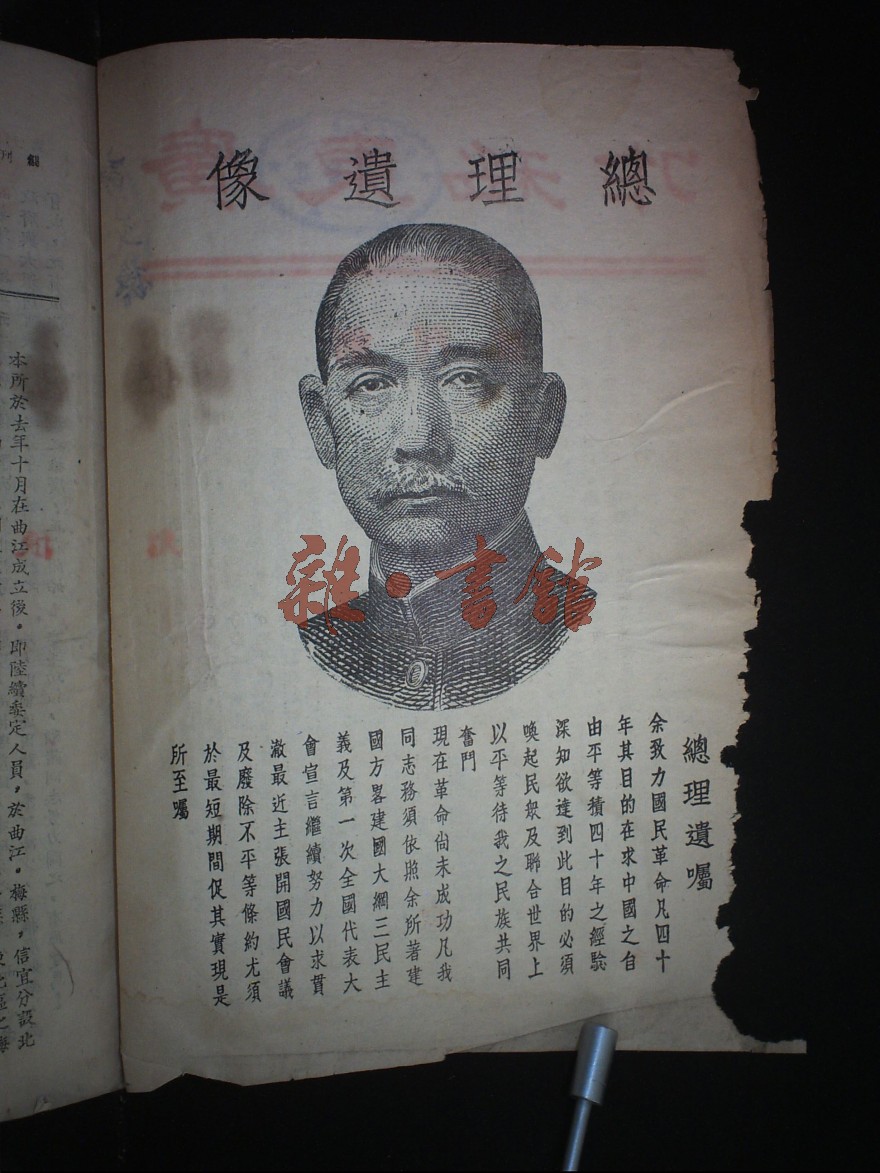 總理遺像
雜·書館
總理遺囑
余致力國民革命凡四十
年其目的在求中國之自
由平等積四十年之經驗
深知欲達到此目的必須
喚起民眾及聯合世界上
以平等待我之民族共同
奮鬥
現在革命尚未成功凡我
同志務須依照余所著建
國方畧建國大綱三民主
義及第一次全國代表大
會宣言繼續努力以求貫
澈最近主張開國民會議
及廢除不平等條約尤須
於最短期間促其實現是
所至囑
本所於去年十月在曲江成立後。即陸續委定人員，於曲江。梅縣，信宜分設北